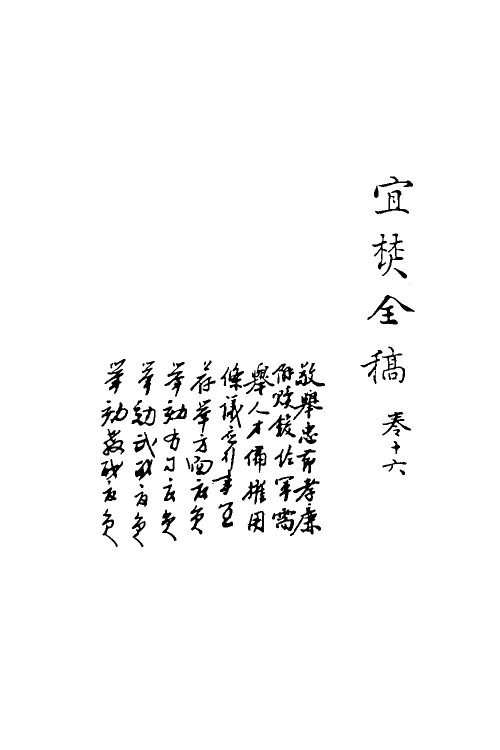 宜焚全稿 卷十六
敬舉忠節孝廉
俯贖鍰佐軍需
舉人才備擢用
條議兵行事宜
荐舉方面官員
舉劾有司官員
舉劾武職官員
舉劾教職官員